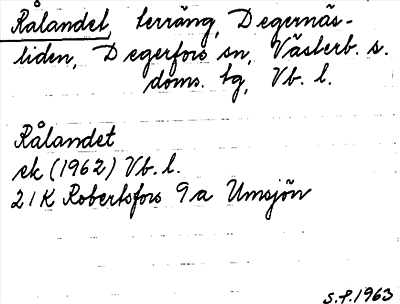 Rålandet, terräng, Degernäs-
liden, Degerfors sn, Västerb. s.
doms. tg, Vb. l.
Rålandet
ek (1962) Vb. l.
21K Robertsfors 9a Umsjön
S.P. 1963